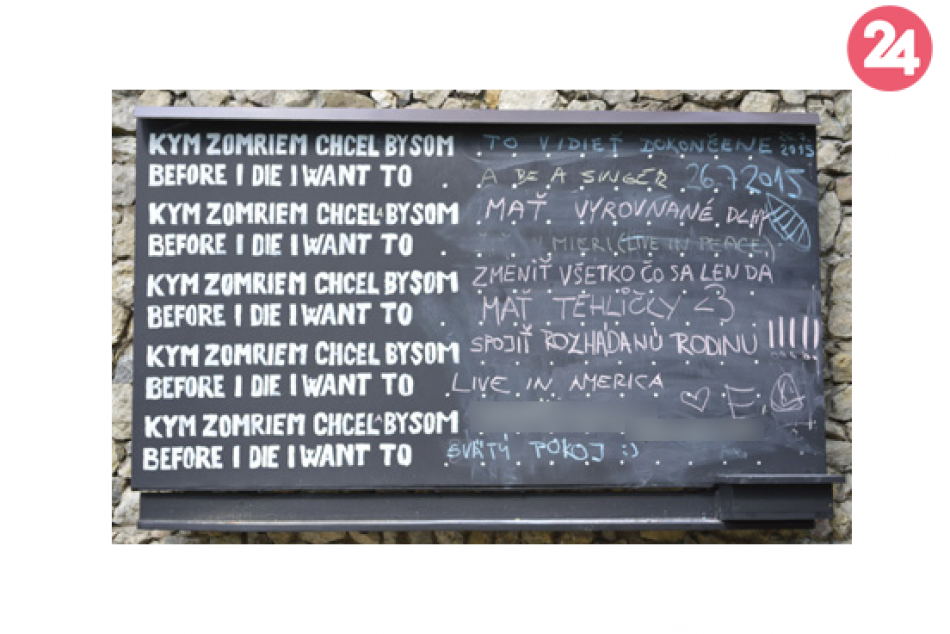 24
KYM ZOMRIEM CHCEL BY SOM TO VIDIEŤ DOKONČENE 2015
BEFORE I DIE I WANT TO A BE A SINGER 26.7.2015
KYM ZOMRIEM CHCELA BY SOM MAŤ VYROVNANÉ DLHY
BEFORE I DIE I WANT TO V MIERI (LIVE IN PEACE)
KYM ZOMRIEM CHCEL BY SOM ZMENIŤ VŠETKO ČO SA LEN DA
BEFORE I DIE I WANT TO MAŤ TEHLIČKY <3
KYM ZOMRIEM CHCEL BY SOM SPOJIŤ ROZHÁDANÚ RODINU
BEFORE I DIE I WANT TO LIVE IN AMERICA
KYM ZOMRIEM CHCELA BY SOM
BEFORE I DIE I WANT TO SVÄTÝ POKOJ :)